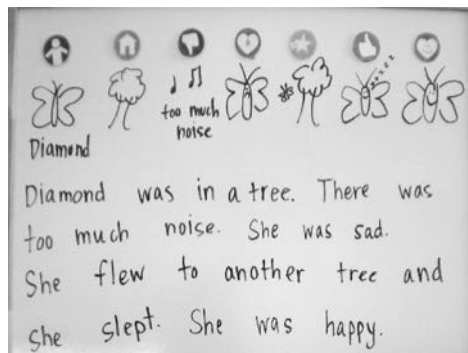 z z z z z
too much
noise
Diamond
Diamond was in a tree. There was
too much noise. She was sad.
She flew to another tree and
She slept. She was happy.